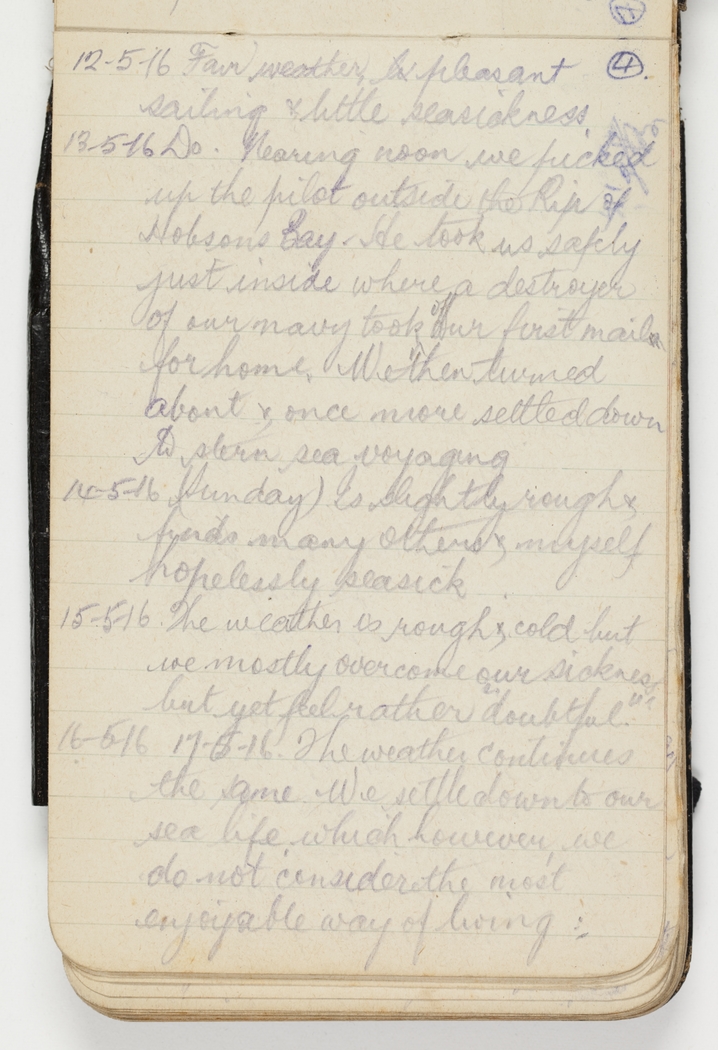 4.
12-5-16 Fair weather, & pleasant
sailing & little seasickness
13-5-16 Do. Nearing noon we picked
up the pilot outside the Rip of
Hobsons Bay. He took us safely
just inside where a destroyer
of our navy took off our first mails
for home. We then turned
about & once more settled down
to stern sea voyaging
14-5-16 (Sunday) Is slightly rough &
finds many others & myself
hopelessly seasick
15-5-16. The weather is rough & cold but
we mostly overcome our sickness
but yet feel rather "doubtful."
16-5-16 17-5-16. The weather continues
the same. We settle down to our
sea life which however, we
do not consider the most
enjoyable way of living :-